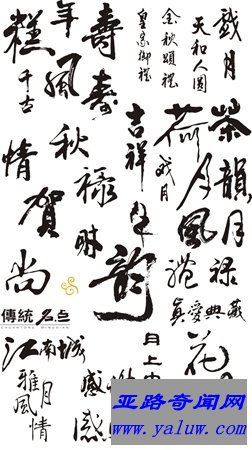 年風
糕
千古
情
壽壽
秋
賀
尚
祿
財
金秋頌禮
皇家御禮
天和人圓
戲月
吉祥
年
韵
荷
月
風
禮
茶韻
月
祿
真愛典藏
花
月上中
傳統 名点
CHUANTONG MINGDIAN
江南城
雅風
月
情
感
感
亚路奇闻网
www.yaluw.com